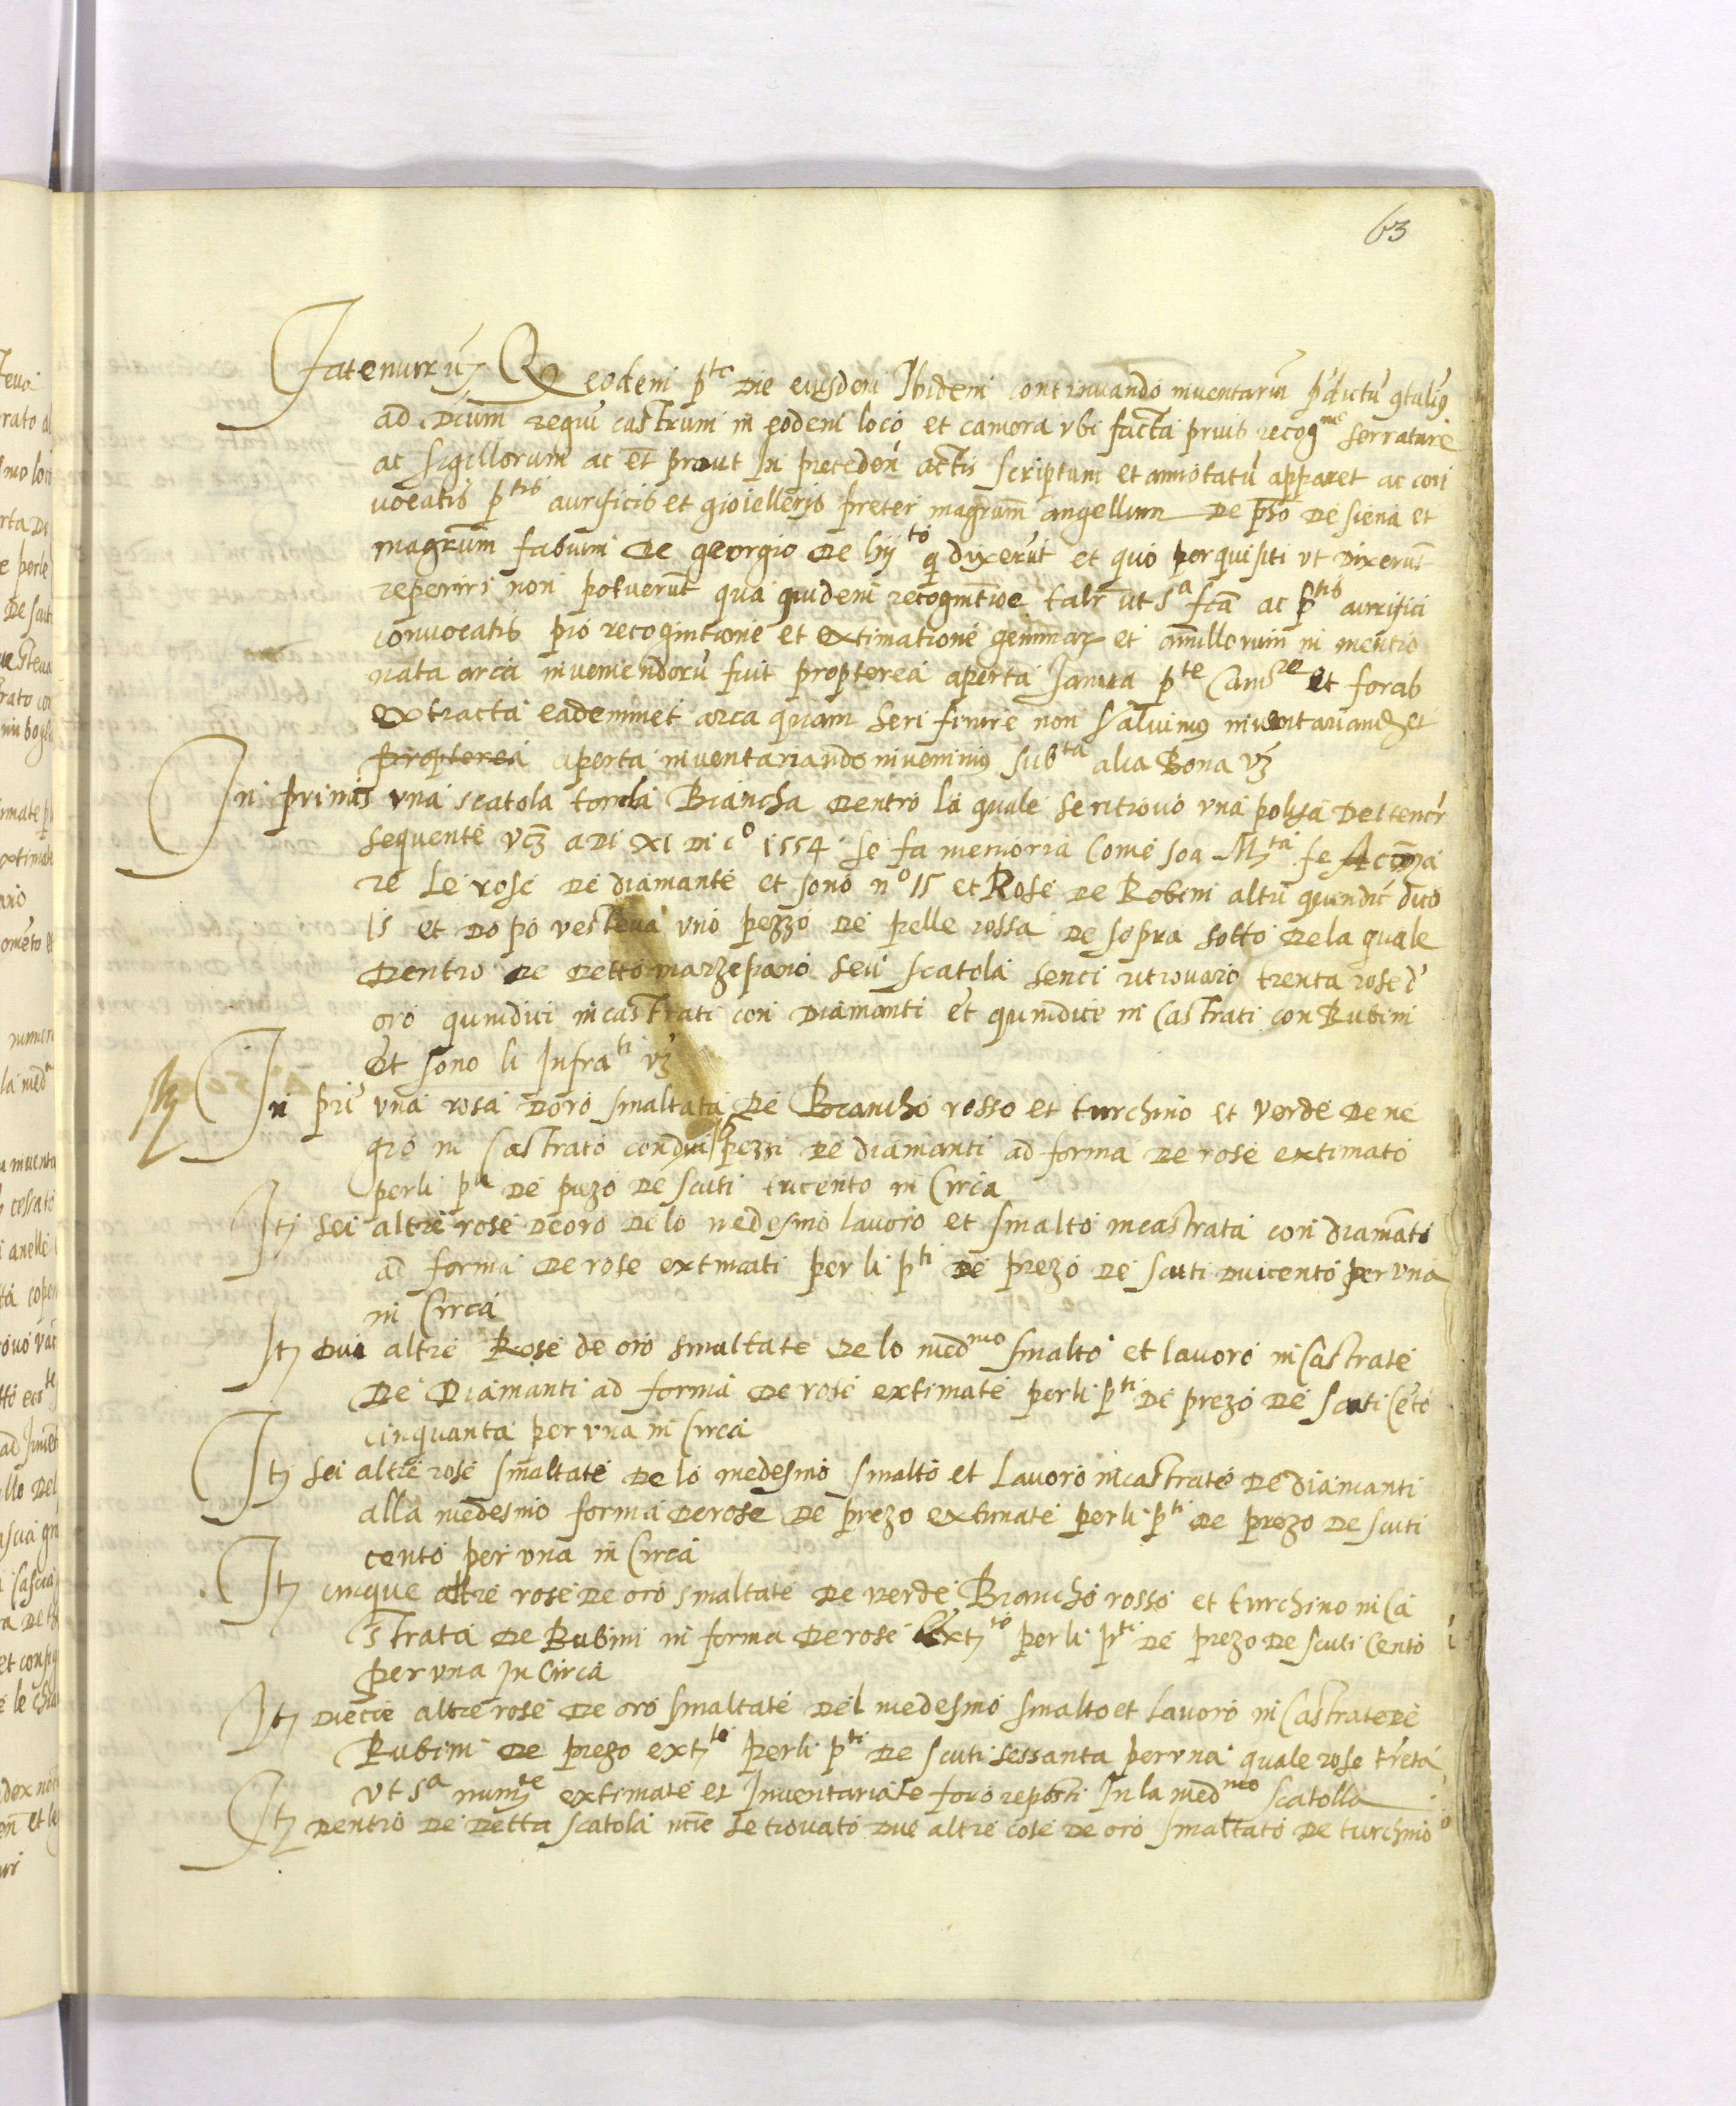 63
Fatemur Q eodem p.te Die eiusdem Ibidem continuando inventariũ p̃dictũ
ad Dictum regiũ castrum in eodem loco et camera ubi facta prius recog.ne serrature
ac sigillorum ac et prout In preceden actis scriptum et annotatũ apparet ac con
vocatis p.tis aurificis et gioielleris preter mag.cum angellum De p̃so De siena et
mag.cum fabium De georgio De hij.to q̃ dixerũt et quo perquisiti ut Dixerũt
reperiri non potuerũt qua quidem recognitioe talr̃ ut s.a fcã ac p.tis aurifici
convocatis pro recognitione et extimatione gemmar et anullorum in mentio
nata arca inveniendorũ fuit propterea aperta Ianua p.te Cam.re et foras
extracta eademmet arca quam heri finire non valuimus inventariand et
propterea aperta inventariando invenimus sub.ta alia Bona vz
In primis una scatola tonda Biancha dentro la quale se ritrovò una polisa Del tenor
sequente vcz a Di XI Di c.o 1554 se fa memoria Come soa M.tà fe
re Le rose de diamante et sono n.o 15 et Rose de Robini altri quindici dico
15 et Dopo resteva uno pezzo de pelle rossa De sopra sotto De la quale
Dentro De Detto marzepano seu scatola senci ritrovaro trenta rose d'
oro quindici incastrati con Diamanti et quindici in Castrati con Rubini
Et sono li Infra.ti vz
In pri una rosa D oro smaltata De Biancho rosso et turchino et verde De ne
gro in Castrato con dui pezzi De diamanti ad forma De rose extimato
per li p.ti De prezo De scuti tricento in Circa
It sei altre rose De oro De lo medesmo lavoro et smalto incastrata con diamãti
ad forma De rose extimati per li p.ti De prezo De scuti Duicento per una
in Circa
It Due altre Rose de oro smaltate De lo med.mo smalto et lavoro in Castrate
De Diamanti ad forma De rose extimate per li p.ti De prezo De scuti Cẽto
cinquanta per una in Circa
It sei altre rose smaltate De lo medesmo smalto et Lavoro incastrate De diamanti
alla medesmo forma De rose De prezo extimate per li p.ti De prezo De scuti
cento per una in Circa
It cinque altre rose De oro smaltate De verde Biancho rosso et turchino in Ca
strata De Rubini in forma De rose ext.to per li p.ti De prezo De scuti Cento
per una In Circa
It Diece altre rose De oro smaltate Del medesmo smalto et Lavoro in Castrate De
Rubini De prezo ext.te per li p.ti De scuti sessanta per una quale rose trẽta
ut s.a num.te extimate et Inventariate foro reposti In la med.mo scatolla
It Dentro De Detta scatola nce se trovato Due altre cose De oro smaltato De turchino